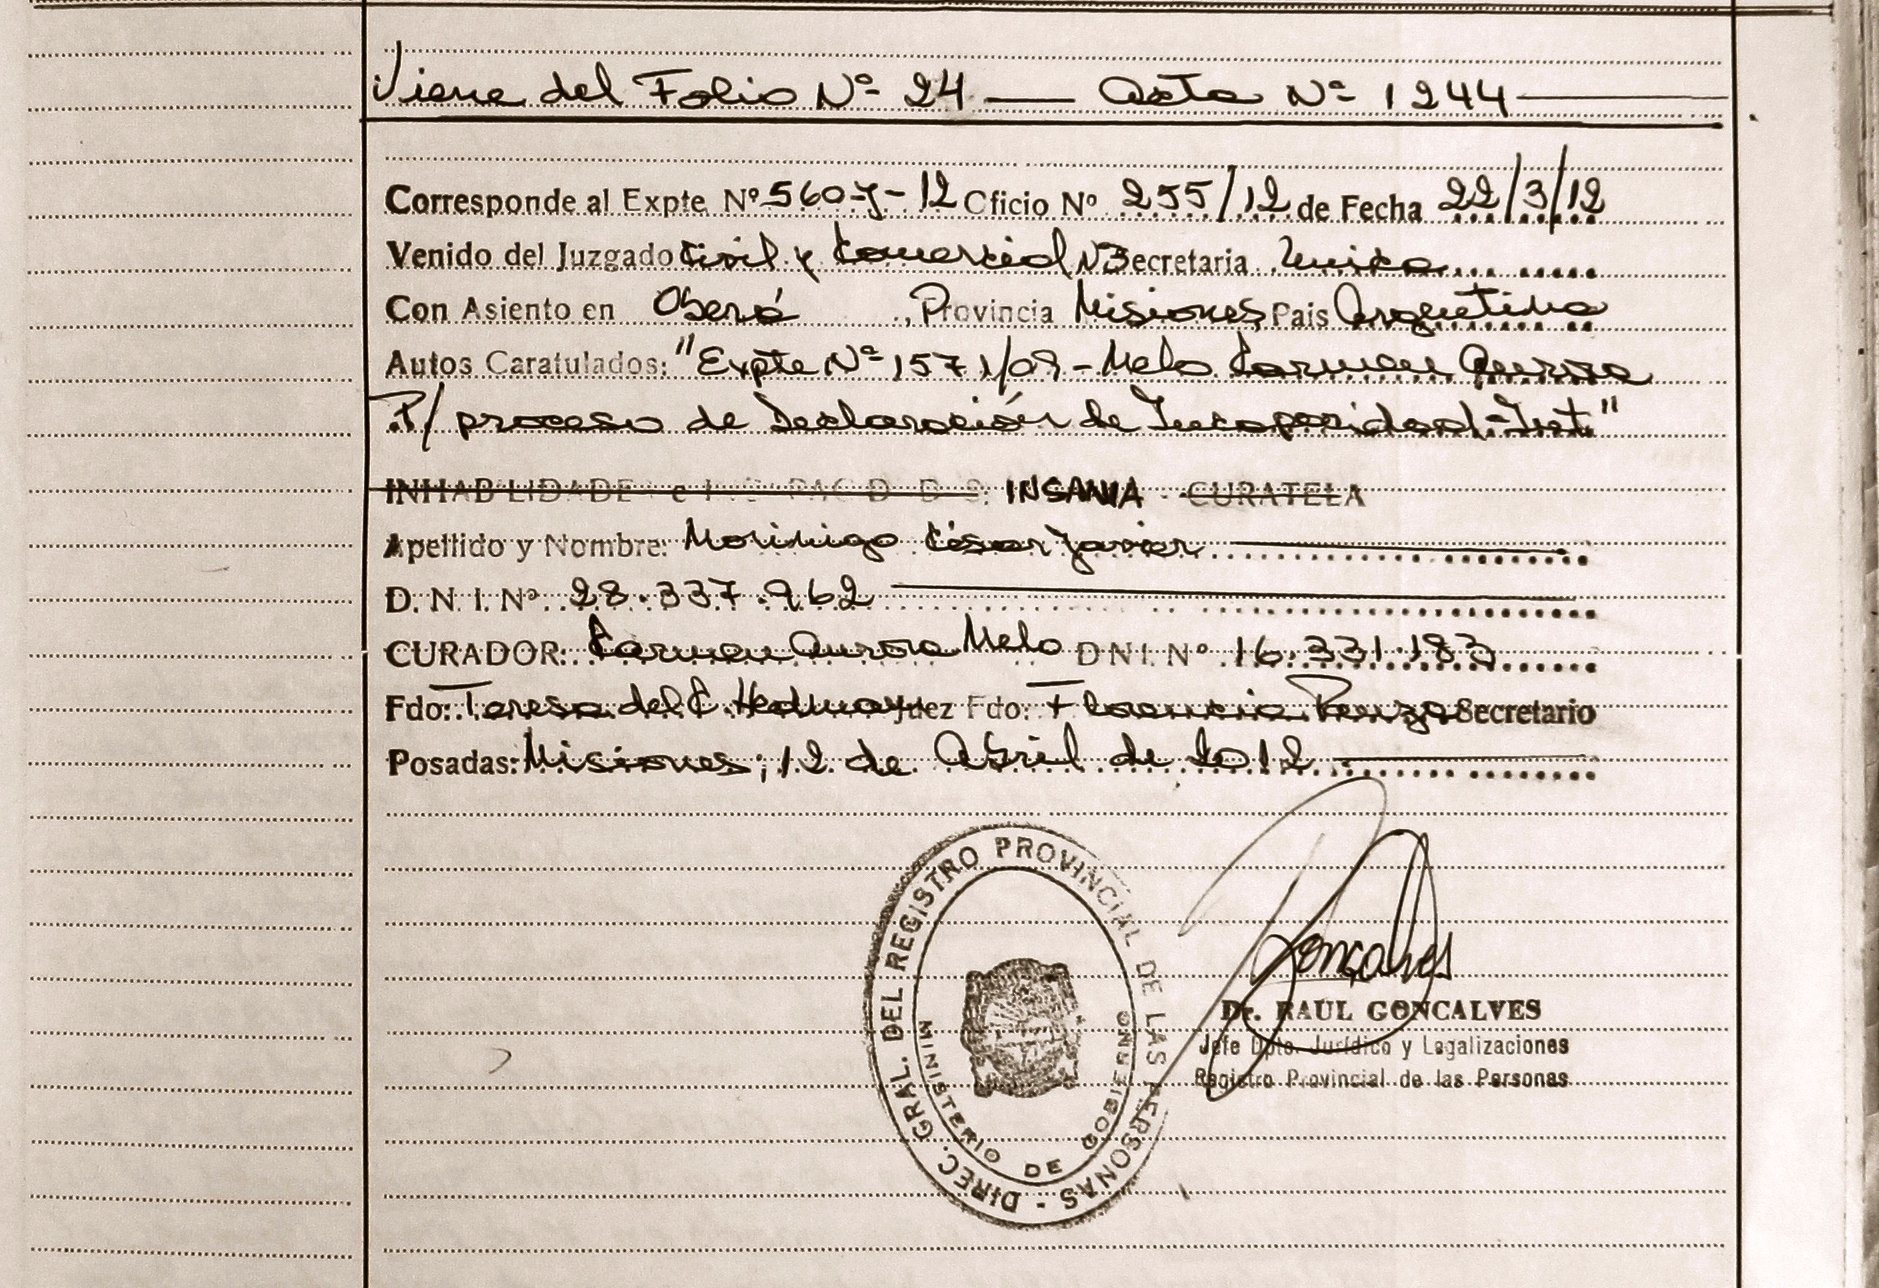 Viene del Folio Nº 24 — Acta Nº 1244
Corresponde al Expte Nº 560-J-12 Oficio Nº 255/12 de Fecha 22/3/12
Venido del Juzgado Civil y Comercial N3 Secretaria Unica
Con Asiento en Oberá, Provincia Misiones Pais Argentina
Autos Caratulados: "Expte Nº 1571/09 - Melo Carmen Aurora
P/ proceso de Declaración de Incapacidad - Inst."
INHABILIDADE INSANIA - CURATELA
Apellido y Nombre: Morinigo César Javier
D. N I. Nº 28.337.962
CURADOR: Carmen Aurora Melo D N I. Nº 16.331.183
Fdo: Teresa del C. Juez Fdo: Secretario
Posadas: Misiones; 12 de Abril de 2012
DIREC. GRAL. DEL REGISTRO PROVINCIAL DE LAS PERSONAS -
MINISTERIO DE GOBIERNO
Gonçalves
Dr. RAUL GONCALVES
Jefe Dpto. Jurídico y Legalizaciones
Registro Provincial de las Personas